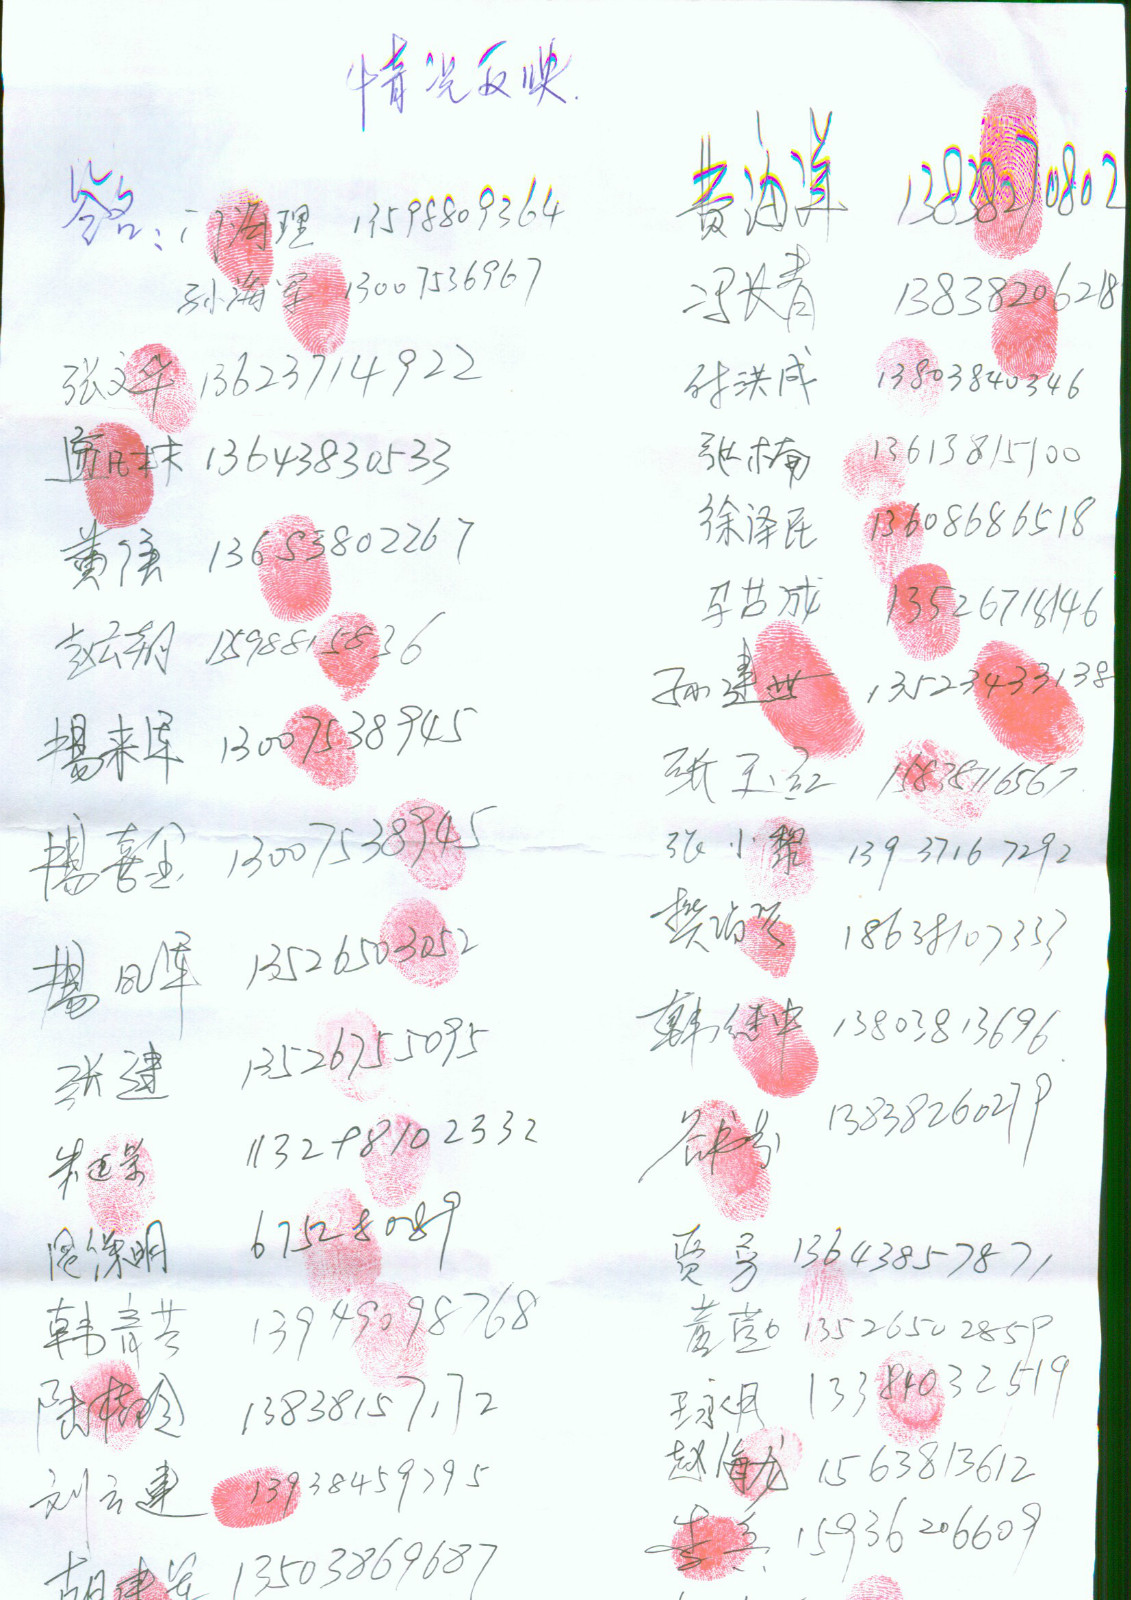 情况反映.
签名: 门海理 13598809364
孙海军 13007536967
张文华 13623714922
凡林 13643830533
黄俊 13653802267
赵云朝 15988158836
楊来库 13007538945
楊喜全 13007538945
楊凤库 13526503052
张建 13526755095
朱建荣 113298102332
保明 67528089
韩青芸 13949098768
陆桂玲 13838157172
刘云建 13938459795
胡建军 13503869687
黄海洋 13838270802
冯长青 13838206218
付洪成 13803840346
张楠 13613815100
徐泽民 13608686518
李苗成 13526718146
孙建 13523433138
张玉红 15838716567
张小攀 13937167292
樊 18638107333
韩继中 13803813696
13838260279
贾勇 13643857871
董 13526502859
王永月 13384032519
赵海龙 1563813612
15936206609